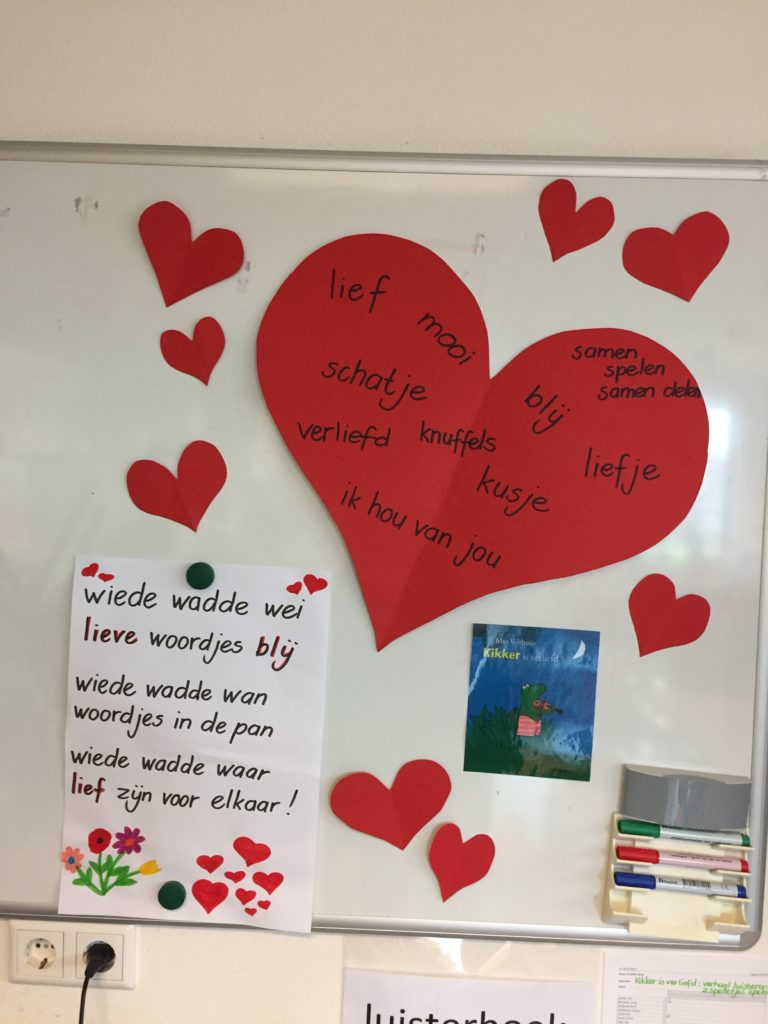 lief
mooi
schatje
verliefd
knuffels
samen
spelen
samen delen
blij
liefje
kusje
ik hou van jou
wiede wadde wei
lieve woordjes blij
wiede wadde wan
woordjes in de pan
wiede wadde waar
lief zijn voor elkaar!
Max Velthuijs
Kikker is verliefd
luisterhoek
Kikker is verliefd: verhaal luisteren